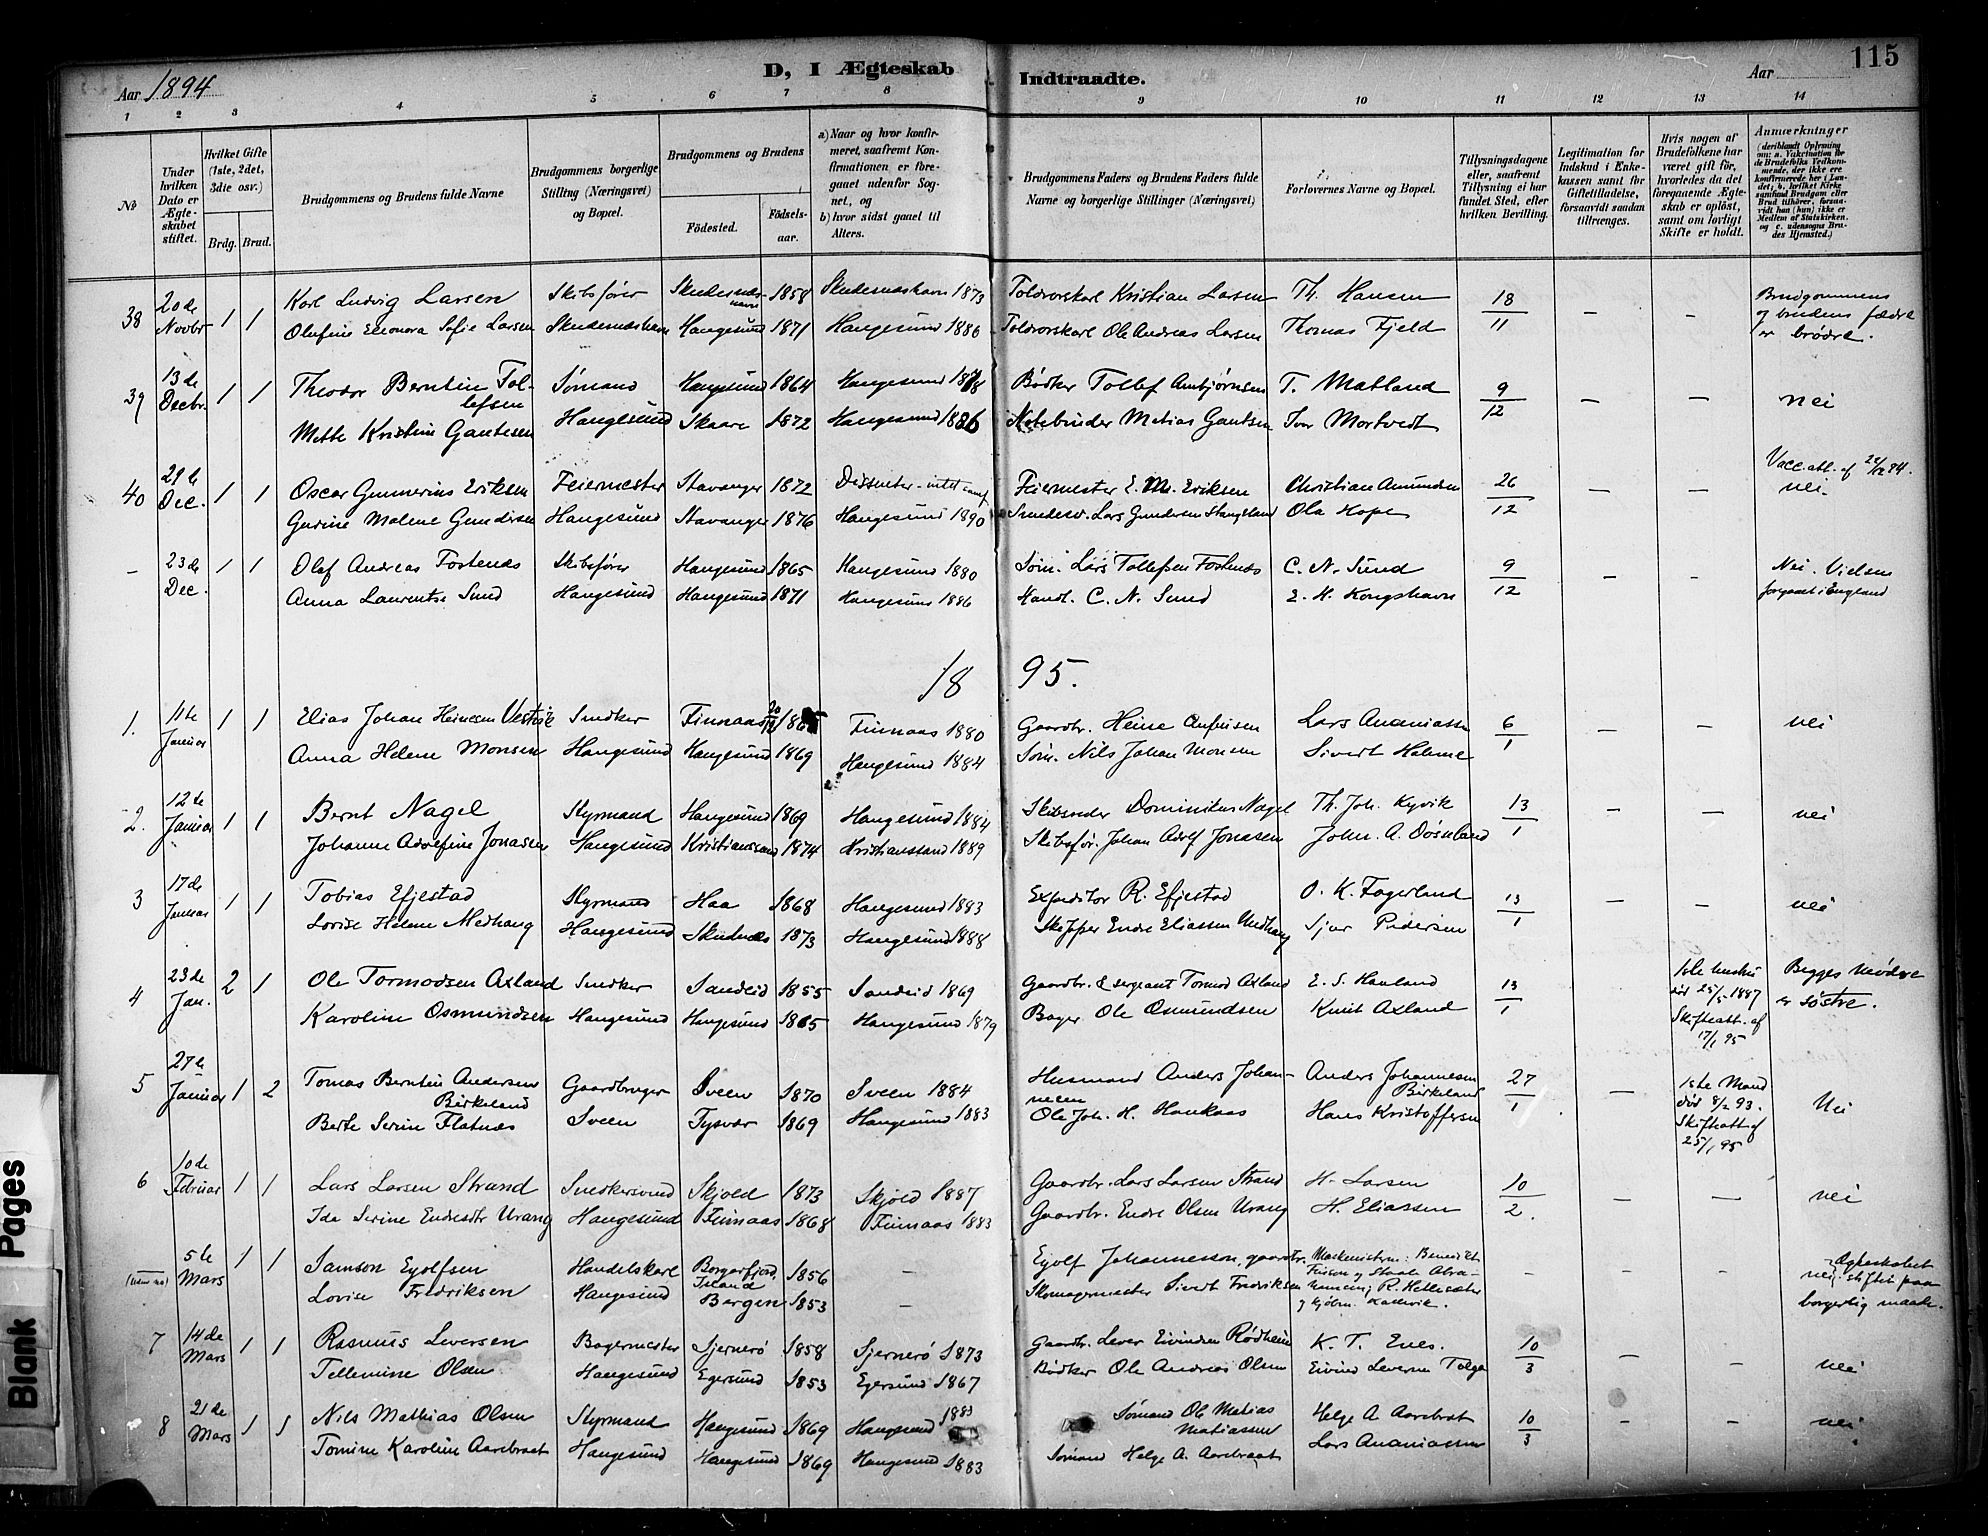 115
D, I Ægteskab Indtraadte.
Aar 1894 Aar
1 2 3 4 5 6 7 8 9 10 11 12 13 14
No
Under hvilken Dato er Ægteskabet stiftet.
Hvilket Gifte (1ste, 2det, 3die osv.)
Brdg. Brud.
Brudgommens og Brudens fulde Navne
Brudgommens borgerlige Stilling (Næringsvei) og Bopæl.
Brudgommens og Brudens
Fødested. Fødselsaar.
a) Naar og hvor konfirmeret, saafremt Konfirmationen er foregaaet udenfor Sognet, og b) hvor sidst gaaet til Alters.
Brudgommens Faders og Brudens Faders fulde Navne og borgerlige Stillinger (Næringsvei)
Forlovernes Navne og Bopæl.
Tillysningsdagene eller, saafremt Tillysning ei har fundet Sted, efter hvilken Bevilling.
Legitimation for Indskud i Enkekassen samt for Giftetilladelse, forsaavidt saadan tiltrænges.
Hvis nogen af Brudefolkene har været gift før, hvorledes da det foregaaende Ægteskab er opløst, samt om lovligt Skifte er holdt.
Anmærkninger (deriblandt Oplysning om: a. Vakcination for de Brudefolks Vedkommende, der ikke ere konfirmerede her i Landet; b. hvilket Kirkesamfund Brudgom eller Brud tilhører, forsaavidt han (hun) ikke er Medlem af Statskirken, og c. udensogns Brudes Hjemsted.)
38 20de Novbr 1 1 Karl Ludvig Larsen Skibsfører Skudesneshavn 1858 Skudesneshavn 1873 Toldrorskarl Kristian Larsen Th. Hansen 18/11 – – Brudgommens og brudens fædre er brödre.
Olufine Eleonora Sofie Larsen Skudesneshavn Haugesund 1871 Haugesund 1886 Toldrorskarl Ole Andreas Larsen Thomas Fjeld
39 13de Decbr. 1 1 Theodor Berntin Tollefsen Sømand Haugesund 1864 Haugesund 1878 Bødker Tollef Ambjørnsen T. Matland 9/12 – – nei
Mette Kristine Gautesen Haugesund Skaare 1872 Haugesund 1886 Notebinder Matias Gautsen Ivar Mortvedt
40 29de Dec. 1 1 Oscar Gunnerius Eriksen Feiermester Stavanger 1872 Dissenter - intet conf Feiermester E. M. Eriksen Christian Amundsen 26/12 – – Vacc. att. af nei.
Gurine Malene Gundersen Haugesund Stavanger 1876 Haugesund 1890 Smedesv. Lars Gundersen Stangeland Ola Hope
– 23de Dec. 1 1 Olaf Andreas Fostenæs Skibsfører Haugesund 1865 Haugesund 1880 Søm. Lars Tollefsen Fostenæs C. N. Sund 9/12 – – Nei. Vielsen foregaaet i England
Anna Laurentse Sund Haugesund Haugesund 1871 Haugesund 1886 Handl. C. N. Sund E. H. Kongshavn
1895.
1. 11te Januar 1 1 Elias Johan Heinesen Vestvik Snedker Finnaas 1865 Finnaas 1880 Gaardbr. Heine Anfinsen Lars Ananiassen 6/1 – – nei
Anna Helene Monsen Haugesund Haugesund 1869 Haugesund 1884 Søm. Nils Johan Monsen Sivert Halme
2. 12te Januar 1 1 Bernt Nagel Styrmand Haugesund 1869 Haugesund 1884 Skibsreder Dominikus Nagel Th. Joh. Kyvik 13/1 – – nei
Johanne Adolfine Jonasen Haugesund Kristianssand 1874 Kristianssand 1889 Skibsfør. Johan Adolf Jonasen John. A. Døseland
3 17de Januar 1 1 Tobias Efjestad Styrmand Haa 1868 Haugesund 1883 Expeditør R. Efjestad O. K. Fagerland 13/1 – – nei
Lovise Helene Medhaug Haugesund Skudnæs 1873 Haugesund 1888 Skipper Endre Eliassen Medhaug Sjur Pedersen
4 23de Jan. 2 1 Ole Tormodsen Axland Snedker Sandeid 1855 Sandeid 1869 Gaardbr. & sergeant Tormod Axland E. S. Hauland 13/1 1ste hustru død 25/5 1887 Skifteatt. af 17/1 95 Begges mødre er søstre.
Karoline Osmundsen Haugesund Haugesund 1865 Haugesund 1879 Bager Ole Osmundsen Knut Axland
5 27de Januar 1 2 Tomas Berntin Andersen Birkeland Gaardbruger Sveen 1870 Sveen 1884 Husmand Anders Johannesen Anders Johannesen Birkeland 27/1 – 1ste Mand død 8/2 93. Skifteatt af 25/1 95 Nei
Berte Serine Flatnæs Sveen Tysvær 1869 Haugesund 1883 Ole Joh. H. Haukaas Hans Kristoffersen
6 10de Februar 1 1 Lars Larsen Strand Snedkersvend Skjold 1873 Skjold 1887 Gaardbr. Lars Larsen Strand H. Larsen 10/2. – – nei
Ida Serine Endresdtr Urang Haugesund Finnaas 1868 Finnaas 1883 Gaardbr. Endre Olsen Urang H. Eliassen
(uden no) 5te Mars 1 1 Samson Eyolfsen Handelskarl Borgarfjord, Island 1856 – Eyolf Johannesson, gaardbr. – – – nei. Ægteskabet stiftet paa borgerlig maade.
Lovise Fredriksen Haugesund Bergen 1853 – Skomagermester Sivert Fredriksen
7 14de Mars 1 1 Rasmus Seversen Bagermester Sjernerö 1858 Sjernerö 1873 Gaardbr. Sever Eivindsen Rødheim K. T. Enes. 10/3 – – nei
Tellemine Olsen Haugesund Egersund 1853 Egersund 1867 Bødker Ole Andreas Olsen Eivind Severin Tolga
8 21de Mars 1 1 Nils Mathias Olsen Styrmand Haugesund 1869 Haugesund 1883 Sømand Ole Matias Matiassen Helge A Aarebrot 10/3 – – nei
Tomine Karoline Aarebraat Haugesund Haugesund 1869 Haugesund 1883 Sømand Helge A. Aarebraat Lars Ananiassen
Blank Pages